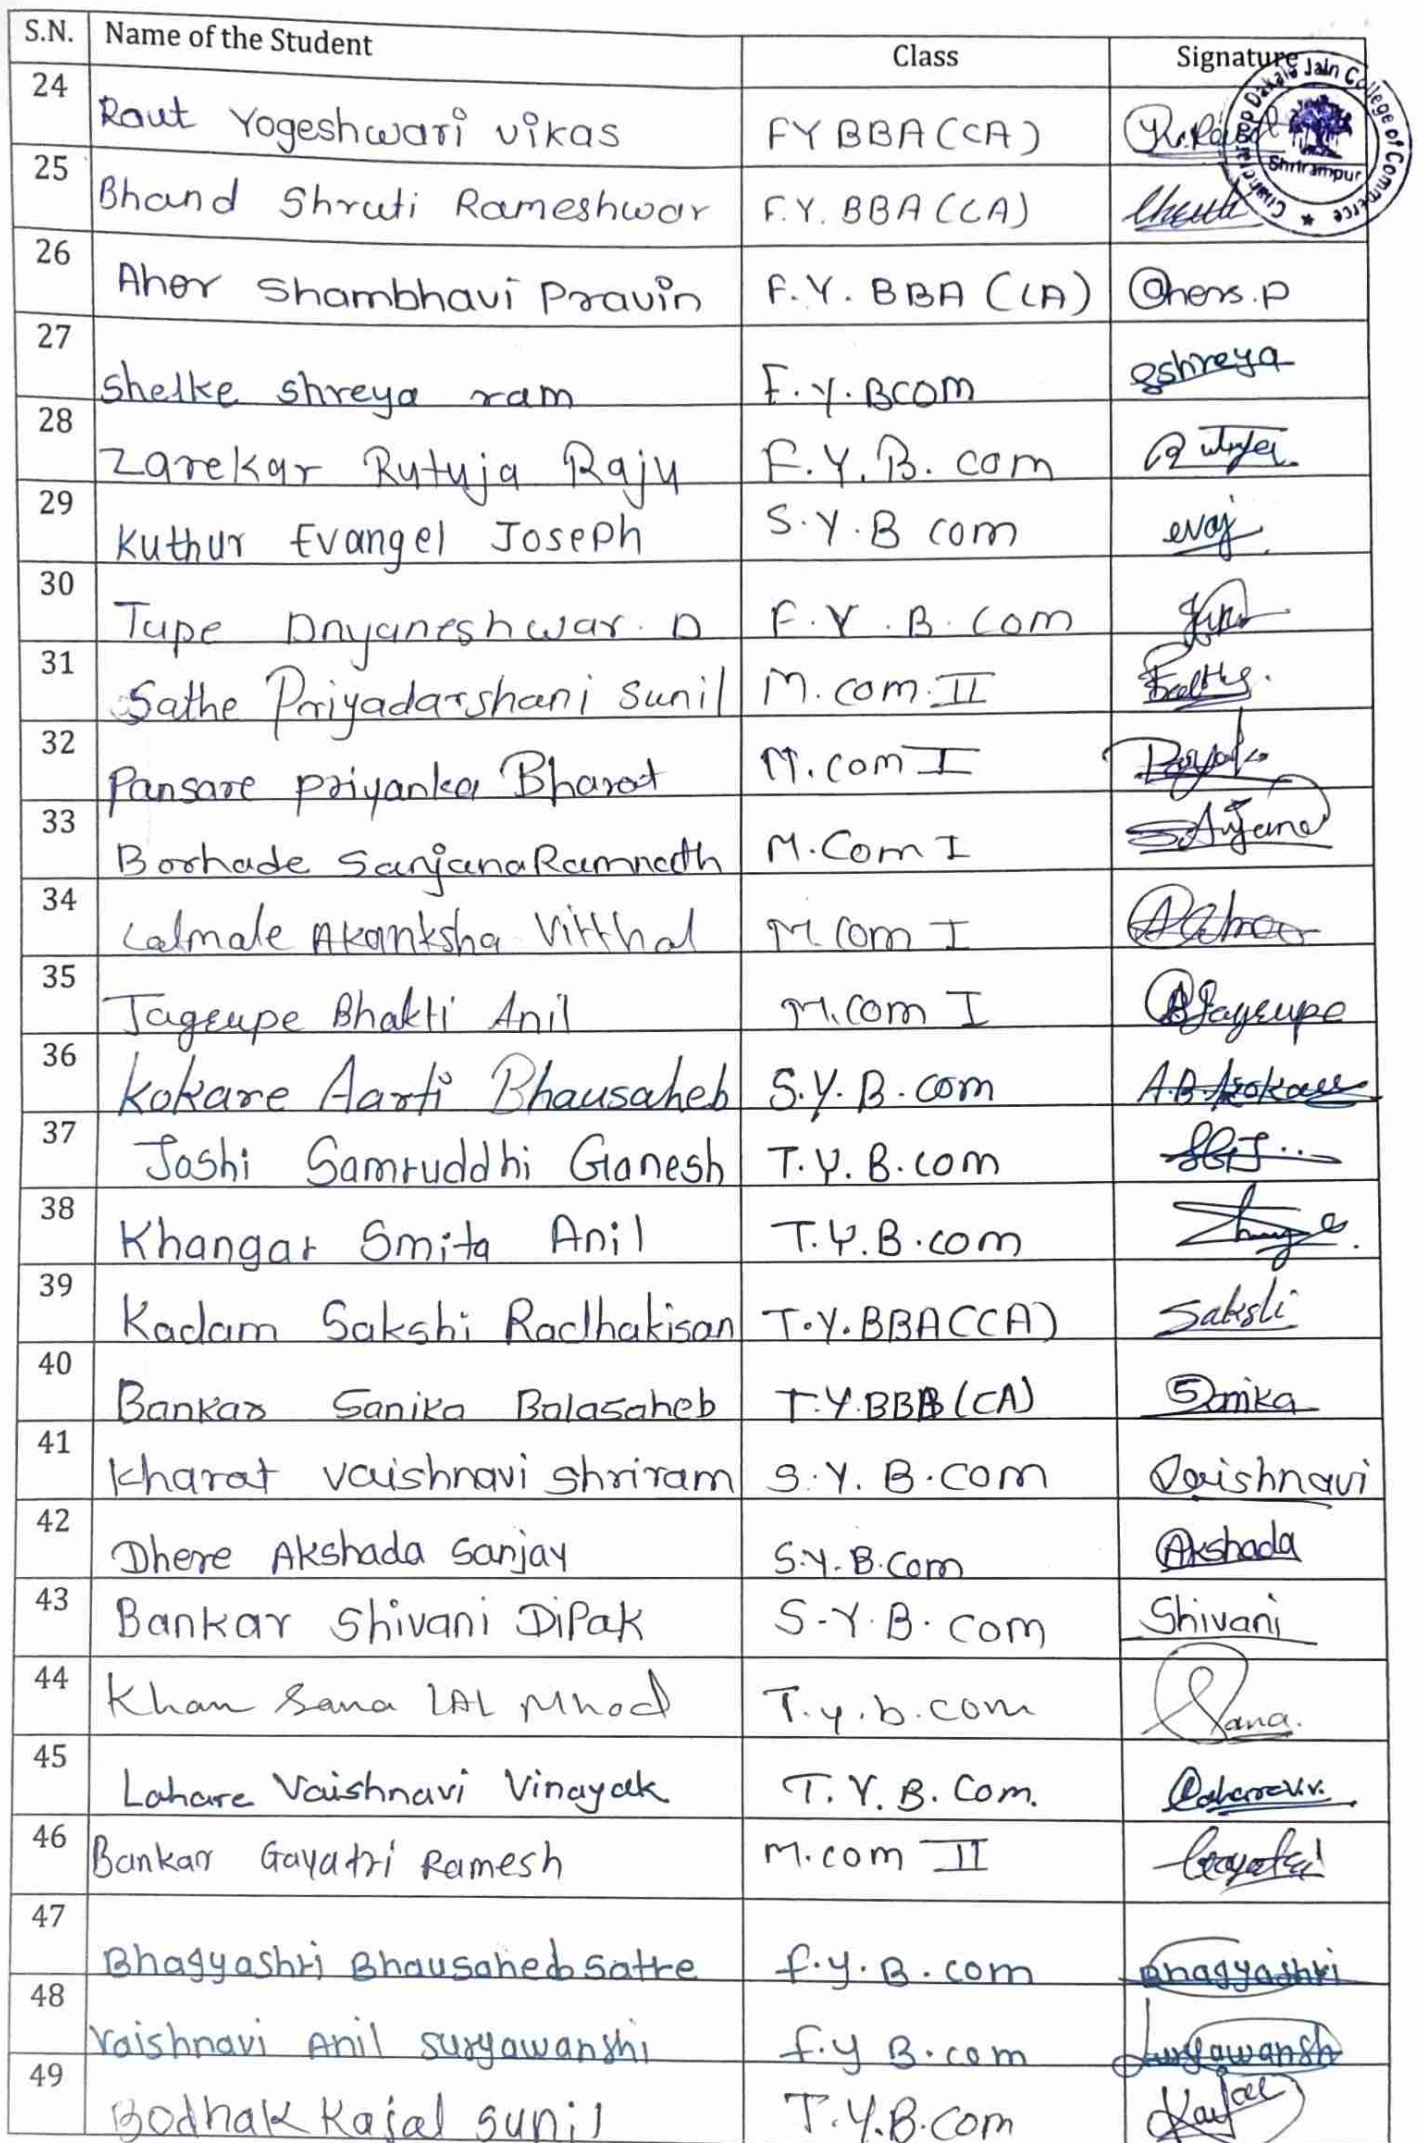 S.N. Name of the Student Class Signature
24 Raut Yogeshwari Vikas FY BBA (CA)
Jain College of Commerce Shrirampur
25 Bhand Shruti Rameshwar F.Y. BBA (CA) Shruti
26 Aher Shambhavi Pravin F.Y. BBA (CA) Ahers.p
27 Shelke Shreya ram F.Y.BCOM Sshreya
28 Zarekar Rutuja Raju F.Y.B. com Rutuja
29 Kuthur Evangel Joseph S.Y.B com evaj
30 Tupe Dnyaneshwar. D F.Y.B. Com
31 Sathe Priyadarshani Sunil M.com.II
32 Pansare Priyanka Bharat M.com I
33 Borhade Sanjana Ramnath M.Com I Sanjana
34 Lalmale Akanksha Vitthal M.Com I
35 Jageupe Bhakti Anil M.Com I BJageupe
36 Kokare Aarti Bhausaheb S.Y.B.com A.B.Kokare
37 Joshi Samruddhi Ganesh T.Y.B.com SGJ...
38 Khangar Smita Anil T.Y.B.com
39 Kadam Sakshi Radhakisan T.Y.BBA(CA) Sakshi
40 Bankar Sanika Balasaheb T.Y.BBA(CA) Sanika
41 Kharat Vaishnavi Shriram S.Y.B.com Vaishnavi
42 Dhere Akshada Sanjay S.Y.B.Com Akshada
43 Bankar Shivani Dipak S-Y.B.com Shivani
44 Khan Sana LAL Mhod T.y.b.com Sana.
45 Lahare Vaishnavi Vinayak T.Y.B.Com. Lahare V.V.
46 Bankar Gayatri Ramesh M.com II Gayatri
47 Bhagyashri Bhausaheb Satre f.y.B.com Bhagyashri
48 Vaishnavi Anil Suryawanshi f.y B.com Suryawanshi
49 Bodhak Kajal Sunil T.Y.B.com Kajal